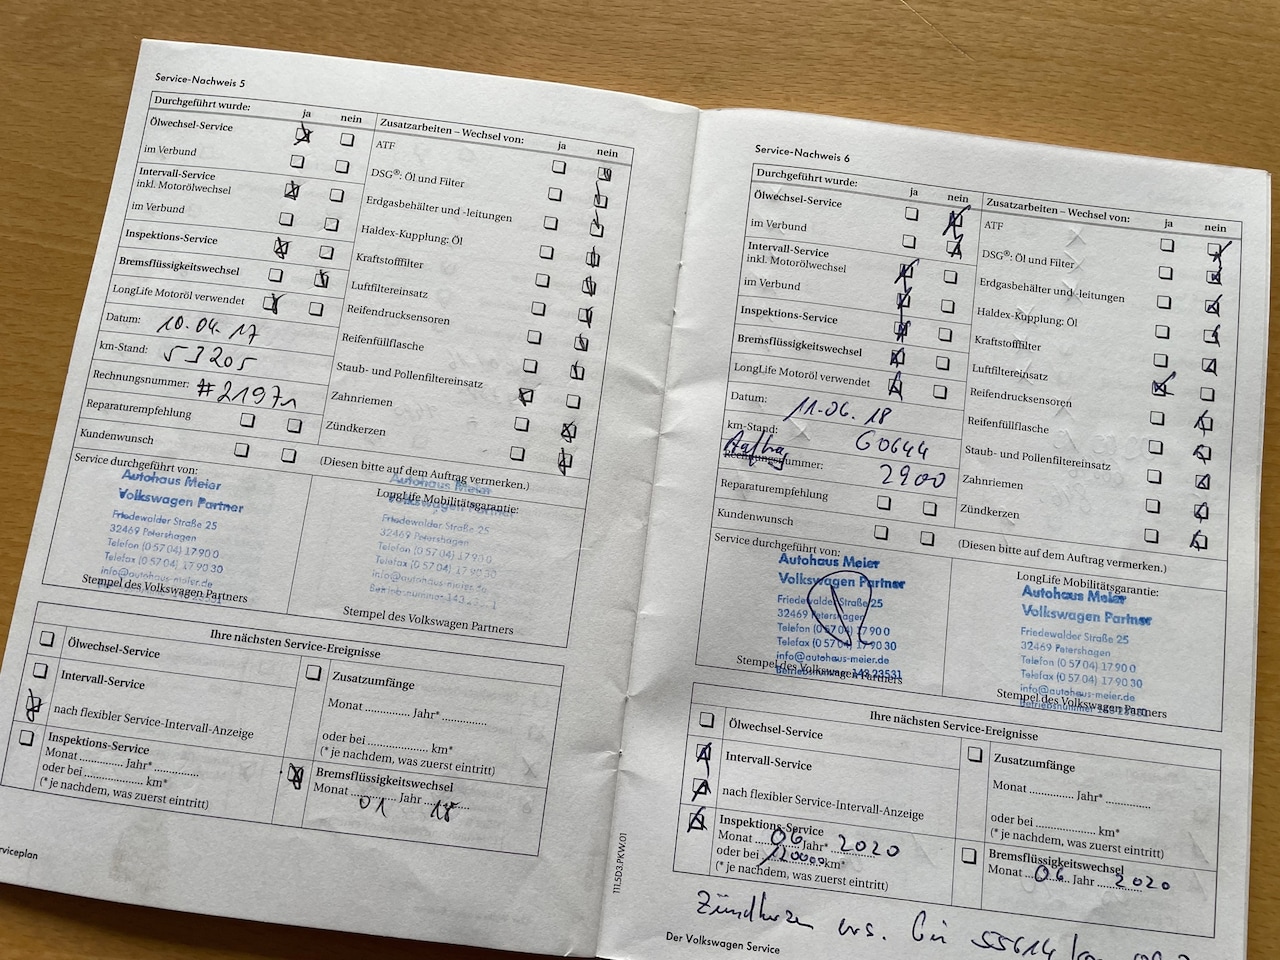 Service-Nachweis 5
Durchgeführt wurde: ja nein
Ölwechsel-Service
im Verbund
Intervall-Service
inkl. Motorölwechsel
im Verbund
Inspektions-Service
Bremsflüssigkeitswechsel
LongLife Motoröl verwendet
Datum: 10.04.17
km-Stand: 53205
Rechnungsnummer: #21971
Reparaturempfehlung
Kundenwunsch
Zusatzarbeiten – Wechsel von: ja nein
ATF
DSG®: Öl und Filter
Erdgasbehälter und -leitungen
Haldex-Kupplung: Öl
Kraftstofffilter
Luftfiltereinsatz
Reifendrucksensoren
Reifenfüllflasche
Staub- und Pollenfiltereinsatz
Zahnriemen
Zündkerzen
(Diesen bitte auf dem Auftrag vermerken.)
Service durchgeführt von:
Autohaus Meier
Volkswagen Partner
Friedewalder Straße 25
32469 Petershagen
Telefon (0 57 04) 17 90 0
Telefax (0 57 04) 17 90 30
info@autohaus-meier.de
Stempel des Volkswagen Partners
LongLife Mobilitätsgarantie:
Autohaus Meier
Volkswagen Partner
Friedewalder Straße 25
32469 Petershagen
Telefon (0 57 04) 17 90 0
Telefax (0 57 04) 17 90 30
info@autohaus-meier.de
Betriebsnummer 143 23531
Stempel des Volkswagen Partners
Ihre nächsten Service-Ereignisse
Ölwechsel-Service
Intervall-Service
nach flexibler Service-Intervall-Anzeige
Inspektions-Service
Monat ............ Jahr* ............
oder bei .................... km*
(* je nachdem, was zuerst eintritt)
Zusatzumfänge
Monat ............ Jahr* ............
oder bei .................... km*
(* je nachdem, was zuerst eintritt)
Bremsflüssigkeitswechsel
Monat 01 Jahr 18
Service-Nachweis 6
Durchgeführt wurde: ja nein
Ölwechsel-Service
im Verbund
Intervall-Service
inkl. Motorölwechsel
im Verbund
Inspektions-Service
Bremsflüssigkeitswechsel
LongLife Motoröl verwendet
Datum: 11.06.18
km-Stand: 60644
Auftrag
Rechnungsnummer: 2900
Reparaturempfehlung
Kundenwunsch
Zusatzarbeiten – Wechsel von: ja nein
ATF
DSG®: Öl und Filter
Erdgasbehälter und -leitungen
Haldex-Kupplung: Öl
Kraftstofffilter
Luftfiltereinsatz
Reifendrucksensoren
Reifenfüllflasche
Staub- und Pollenfiltereinsatz
Zahnriemen
Zündkerzen
(Diesen bitte auf dem Auftrag vermerken.)
Service durchgeführt von:
Autohaus Meier
Volkswagen Partner
Friedewalder Straße 25
32469 Petershagen
Telefon (0 57 04) 17 90 0
Telefax (0 57 04) 17 90 30
info@autohaus-meier.de
Betriebsnummer 143 23531
Stempel des Volkswagen Partners
LongLife Mobilitätsgarantie:
Autohaus Meier
Volkswagen Partner
Friedewalder Straße 25
32469 Petershagen
Telefon (0 57 04) 17 90 0
Telefax (0 57 04) 17 90 30
info@autohaus-meier.de
Stempel des Volkswagen Partners
Ihre nächsten Service-Ereignisse
Ölwechsel-Service
Intervall-Service
nach flexibler Service-Intervall-Anzeige
Inspektions-Service
Monat 06 Jahr* 2020
oder bei 120000 km*
(* je nachdem, was zuerst eintritt)
Zusatzumfänge
Monat ............ Jahr* ............
oder bei .................... km*
(* je nachdem, was zuerst eintritt)
Bremsflüssigkeitswechsel
Monat 06 Jahr 2020
Zündkerzen ers. bei 55614 km
Der Volkswagen Service
111.5D3.PKW.01